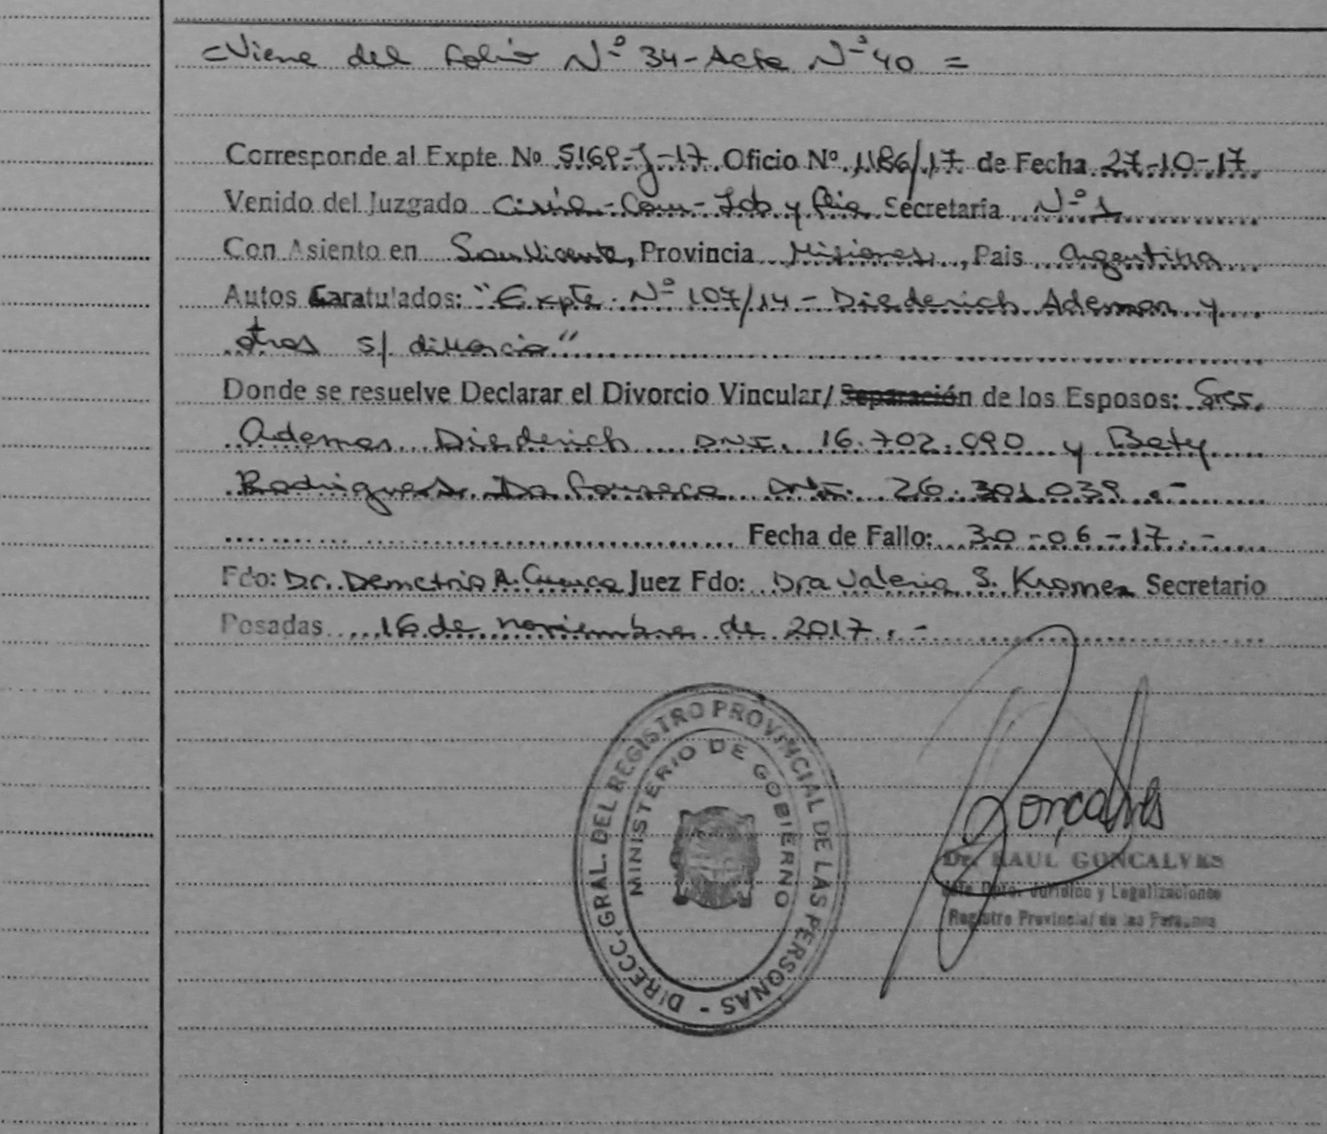 =Viene del folio Nº 34-Acta Nº 40 =
Corresponde al Expte. Nº 5169-J-17 Oficio Nº 1186/17 de Fecha 27-10-17
Venido del Juzgado Civil-Com-Lab y Flia Secretaría Nº 1
Con Asiento en San Vicente, Provincia Misiones, País Argentina
Autos Caratulados: "Expte. Nº 107/14 - Diederich Ademar y
otros s/ divorcio"
Donde se resuelve Declarar el Divorcio Vincular/ Separación de los Esposos: Sres.
Ademar Diederich DNI. 16.702.090 y Bety
Rodrigues Da Fonseca DNI. 26.301.039.-
Fecha de Fallo: 30-06-17.-
Fdo: Dr. Demetrio A. Cuenca Juez Fdo: Dra Valeria S. Kramer Secretario
Posadas 16 de noviembre de 2017.-
DIRECC. GRAL. DEL REGISTRO PROVINCIAL DE LAS PERSONAS -
MINISTERIO DE GOBIERNO
Gonçalves
Dr. RAUL GONCALVES
Dpto. Jurídico y Legalizaciones
Registro Provincial de las Personas